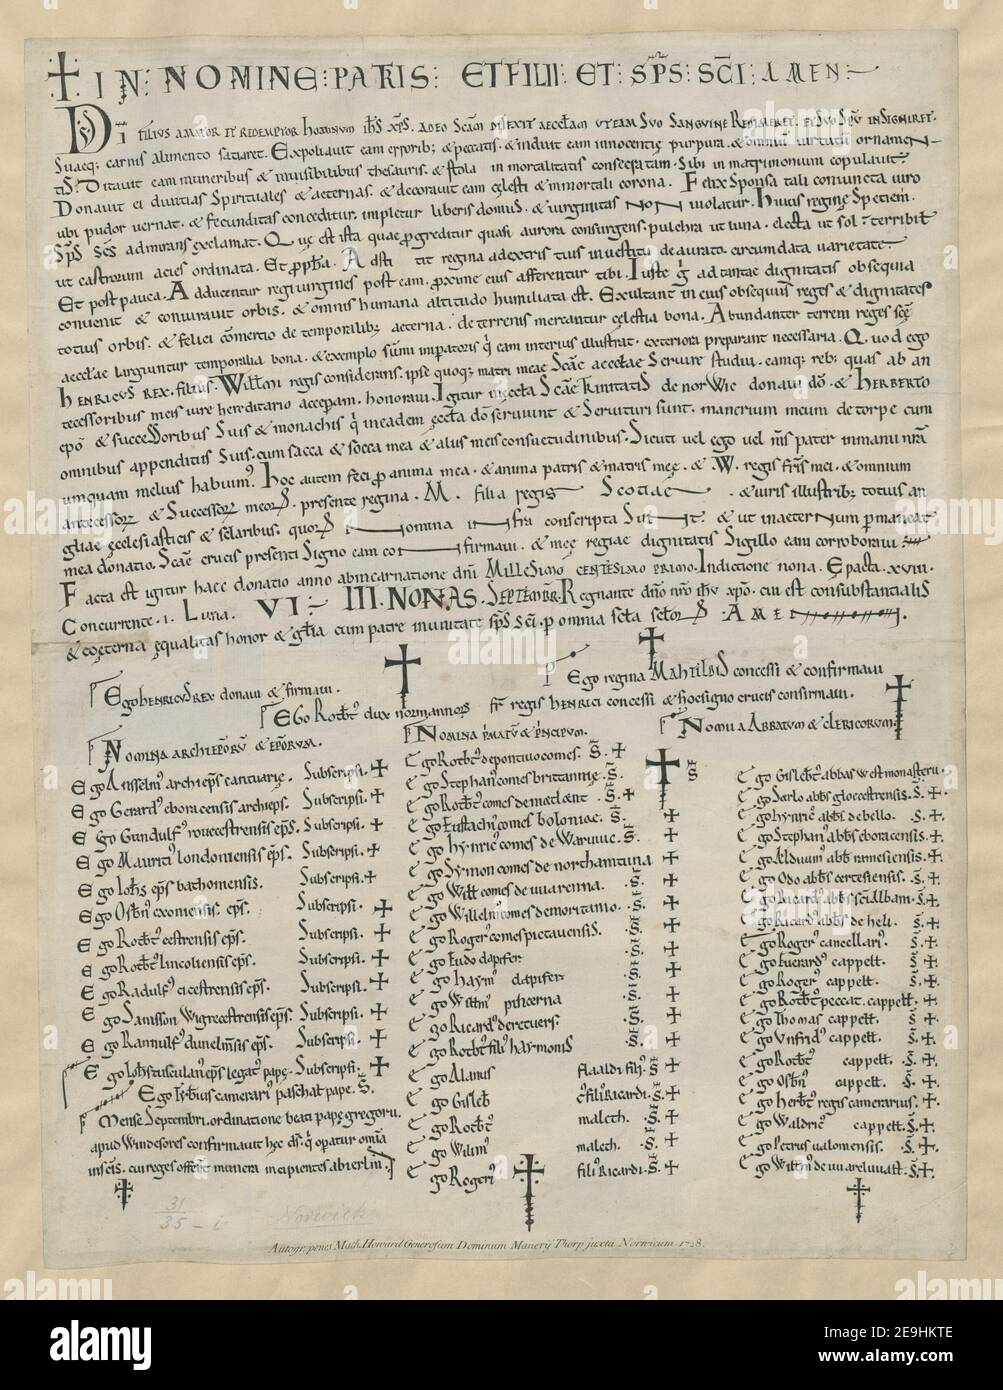 IN : NOMINE : PATRIS : ET FILII : ET : SPS : SCI : AMEN
Di filius amator et redemptor hominum ihs xps. adeo scam dilexit aecclam ut eam suo sanguine redimeret. et suo spu insigniret.
Suaeq; carnis alimento satiaret. Expoliavit eam erroribus & peccatis. & induit eam innocentiae purpura. & omniu virtutu ornamen
tis. Ditavit eam muneribus & invisibilibus thesauris. & stola inmortalitatis consecratam. Sibi in matrimonium copulavit.
Donavit ei divitias spirituales & aeternas. & decoravit eam celesti & inmortali corona. Felix sponsa tali coniuncta viro
ubi pudor vernat. & fecunditas conceditur. impletur liberis domus. & virginitas non violatur. Huius regine speciem.
Sps scs admirans exclamat. Que est ista quae pgreditur quasi aurora consurgens. pulchra ut luna. electa ut sol. terribil
ut castrorum acies ordinata. Et ppha. Adsti tit regina adextris tuis in vestitu deaurato. circumdata varietate.
Et post pauca. Adducentur regi virgines post eam. proxime eius afferentur tibi. Iuste g ad tantae dignitatis obsequia
convenit & coniuravit orbis. & omnis humana altitudo humiliata est. Exultant in eius obsequiis reges & dignitates
totius orbis. & felici comertio de temporalib; aeterna. de terrenis mercantur celestia bona. Abundanter terreni reges sce
aeccl'ae largiuntur temporalia bona. & exemplo sumi imperatoris q eam interius illustrat. exteriora preparant necessaria. Quod ego
HENRICUS REX. filius Willmi regis considerans. ipse quoq; matri meae scae aecclae servire studui. eamq; reb; quas ab an
tecessoribus meis iure hereditario acceperam. honoravi. Igitur in eccta scae trinitatis de norwic donavi do. & HERBERTO
epo & successoribus suis & monachis q in eadem eccta do serviunt & servituri sunt. manerium meum de torpe cum
omnibus appenditiis suis. cum sacca & socca mea & aliis meis consuetudinibus. Sicuti vel ego vel ms pater in manu nra
umquam melius habuim'. Hoc autem feci p anima mea. & anima patris & matris mee. & W. regis fris mei. & omnium
antecessor & successor meor. presente regina. M. filia regis Scotiae. & viris illustrib; totius an
gliae ecclesiasticis & selaribus. quor nomina infra conscripta sunt. & ut inaeternum pmaneat
mea donatio. Scae crucis presenti signo eam confirmavi. & mee regiae dignitatis sigillo eam corroboravi
Facta est igitur haec donatio anno abincarnatione dni MILLESIMO CENTESIMO PRIMO. Indictione nona. Epacta. xviii.
Concurrente. i. Luna. VI. III. NONAS. SEPTEMBR. Regnante dno nro ihu xpo. cui est consubstantialis
& coeterna equalitas honor & glia cum patre inunitate sps sci. p omnia secla seclor. AMEN.
Ego HENRICUS REX donavi & firmavi.
Ego regina MAHTILDIS concessi & confirmavi
Ego Rotbt dux normannor fr regis HENRICI concessi & hoc signo crucis confirmavi.
Nomina archieporu & eporum.
Ego Anselm' archieps cantuarie. Subscripsi.
Ego Gerard' eboracensis archieps. Subscripsi.
Ego Gundulf' rovecestrensis eps. Subscripsi.
Ego Mauriti' londoniensis eps. Subscripsi.
Ego Iohs eps bathoniensis. Subscripsi.
Ego Osbn' exoniensis. eps. Subscripsi.
Ego Rotbt' cestrensis eps. Subscripsi.
Ego Rotbt' lincoliensis eps. Subscripsi.
Ego Radulf' cicestrensis eps. Subscripsi.
Ego Samson wigrecestrensis eps. Subscripsi.
Ego Rannulf' dunelmsis eps. Subscripsi.
Ego Iohs tusculan eps legat' pape. Subscripsi.
Ego Tyberius camerari' paschat pape. S.
Mense Septembri. ordinatione beati pape gregorii.
apud Windesores confirmavit hec ds. q opatur omia
Nomina pmatu & pncipum.
Ego Rotbt' de pontivo comes. S.
Ego Stephan' comes brittannie. S.
Ego Rotbt' comes de maelent. S.
Ego Eustachi' comes boloniae. S.
Ego Hynric' comes de Waruuic. S.
Ego Symon comes de northamtuna
Ego Willt comes de uuarenna. S.
Ego Willelm' comes de moritanio. S.
Ego Roger' comes pictavensis. S.
Ego Eudo dapifer S.
Ego Haym' dapifer S.
Ego Willm' pincerna S.
Ego Ricard' de retuers. S.
Ego Rotbt' fili' haymonis S.
Ego Alanus flaaldi fili'. S.
Ego Gisleb' fili' Ricardi. S.
Ego Rotbt' malet. S.
Ego Willm' malet. S.
Ego Roger' fili' Ricardi. S.
Nomina Abbatum & clericorum.
Ego Gislebt' abbas westmonasterii.
Ego Serlo abbs gloecestrensis. S.
Ego Hynric' abbs de bello. S.
Ego Stephan' abbs eboracensis.
Ego Alduuin' abbs ramesiensis. S.
Ego Odo abbs certesiensis. S.
Ego Ricard' abbs sci Albani. S.
Ego Ricard' abbs de heli. S.
Ego Roger' cancellari'. S.
Ego Euerard' cappelt. S.
Ego Roger' cappelt. S.
Ego Rotbt' peccat. cappelt. S.
Ego Thomas cappelt. S.
Ego Vnfrid' cappelt. S.
Ego Rotbt' cappelt. S.
Ego Osbn' cappelt. S.
Ego Herbt' regis camerarius. S.
Ego Waldric' cappelt. S.
Ego Petrus ualoniensis. S.
31
35 - i Norwich
Autogr. penes Math. Howard Generosum Dominum Manerij Thorp juxta Norwicum 1728.
alamy
Image ID: 2E9HKTE
www.alamy.com